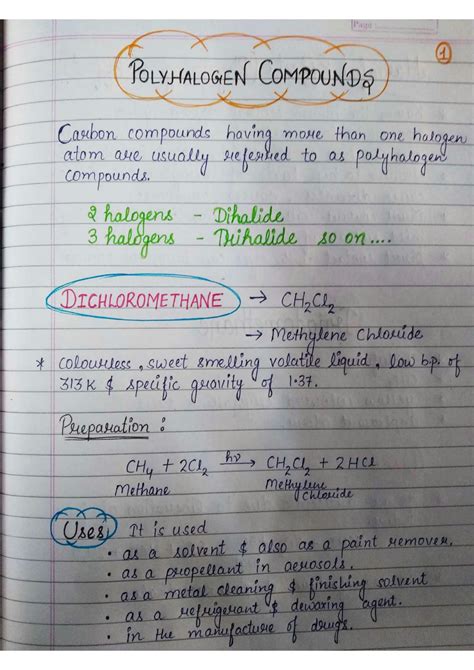 Page
1
POLYHALOGEN COMPOUNDS
Carbon compounds having more than one halogen
atom are usually referred to as polyhalogen
compounds.
2 halogens - Dihalide
3 halogens - Trihalide so on....
DICHLOROMETHANE → CH₂Cl₂
→ Methylene Chloride
* Colourless, sweet smelling volatile liquid, low bp. of
313 K & specific gravity of 1.37.
Preparation :
CH₄ + 2Cl₂ —hν→ CH₂Cl₂ + 2HCl
Methane Methylene
chloride
Uses, It is used
• as a solvent & also as a paint remover.
• as a propellant in aerosols.
• as a metal cleaning & finishing solvent
• as a refrigerant & dewaxing agent.
• in the manufacture of drugs.